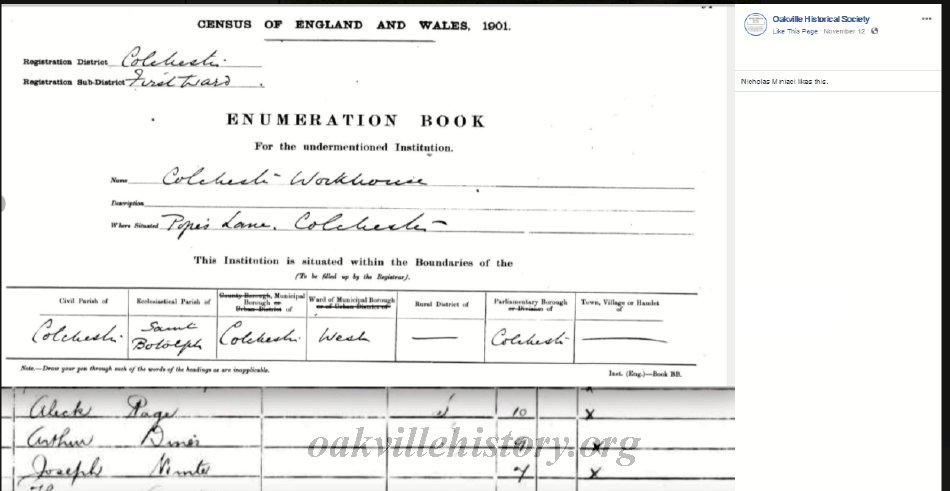 CENSUS OF ENGLAND AND WALES, 1901.
Registration District Colchester
Registration Sub-District First Ward.
ENUMERATION BOOK
For the undermentioned Institution.
Name Colchester Workhouse
Description
Where Situated Popes Lane. Colchester
This Institution is situated within the Boundaries of the
(To be filled up by the Registrar).
Civil Parish of
Ecclesiastical Parish of
County Borough, Municipal
Borough or
Urban District of
Ward of Municipal Borough
or of Urban District of
Rural District of
Parliamentary Borough
or Division of
Town, Village or Hamlet
of
Colchester
Saint
Botolph
Colchester
West
Colchester
Note.—Draw your pen through such of the words of the headings as are inapplicable.
Inst. (Eng.)—Book BB.
Aleck Page 10 X
Arthur 9 X
Joseph 7 X
oakvillehistory.org
Oakville Historical Society
Like This Page · November 12
Nicholas Miniaci likes this.